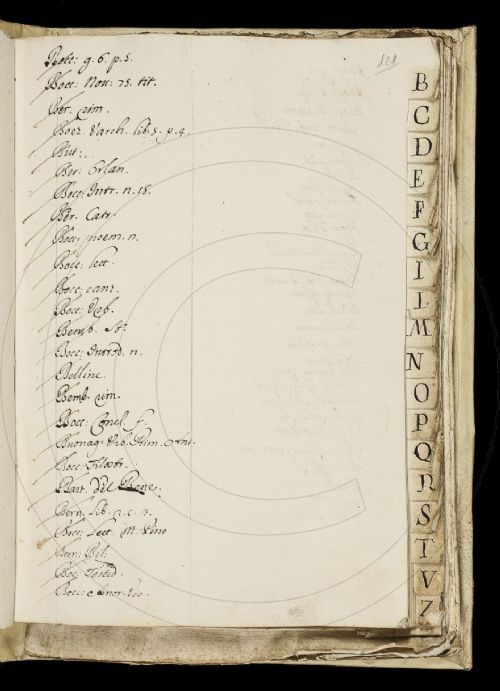 521
Bocc: g. 6. p. 5.
Bocc: Nou: 75. tit.
Ber. rim.
Boez. Varch. lib. 5. p. 9.
But:
Ber: Orlan.
Bocc: Intr. n. 18.
Ber. Catr.
Bocc: poem. n.
Bocc: lett.
Bocc: canz.
Bocc:
Bemb.
Bocc: Introd. n.
Bellinc.
Bemb. rim.
Bocc: Concl. f.
Buonag: Rib. Rim.
Bocc: Filostr.
Bart. Del Bene.
Bern: Lib. 2. c. 2.
Bocc: Lett. M. Pino
Bern:
Boc: Teseid.
Bocc: Amor. Vis.
B
C
D
E
F
G
I
L
M
N
O
P
Q
R
S
T
V
Z